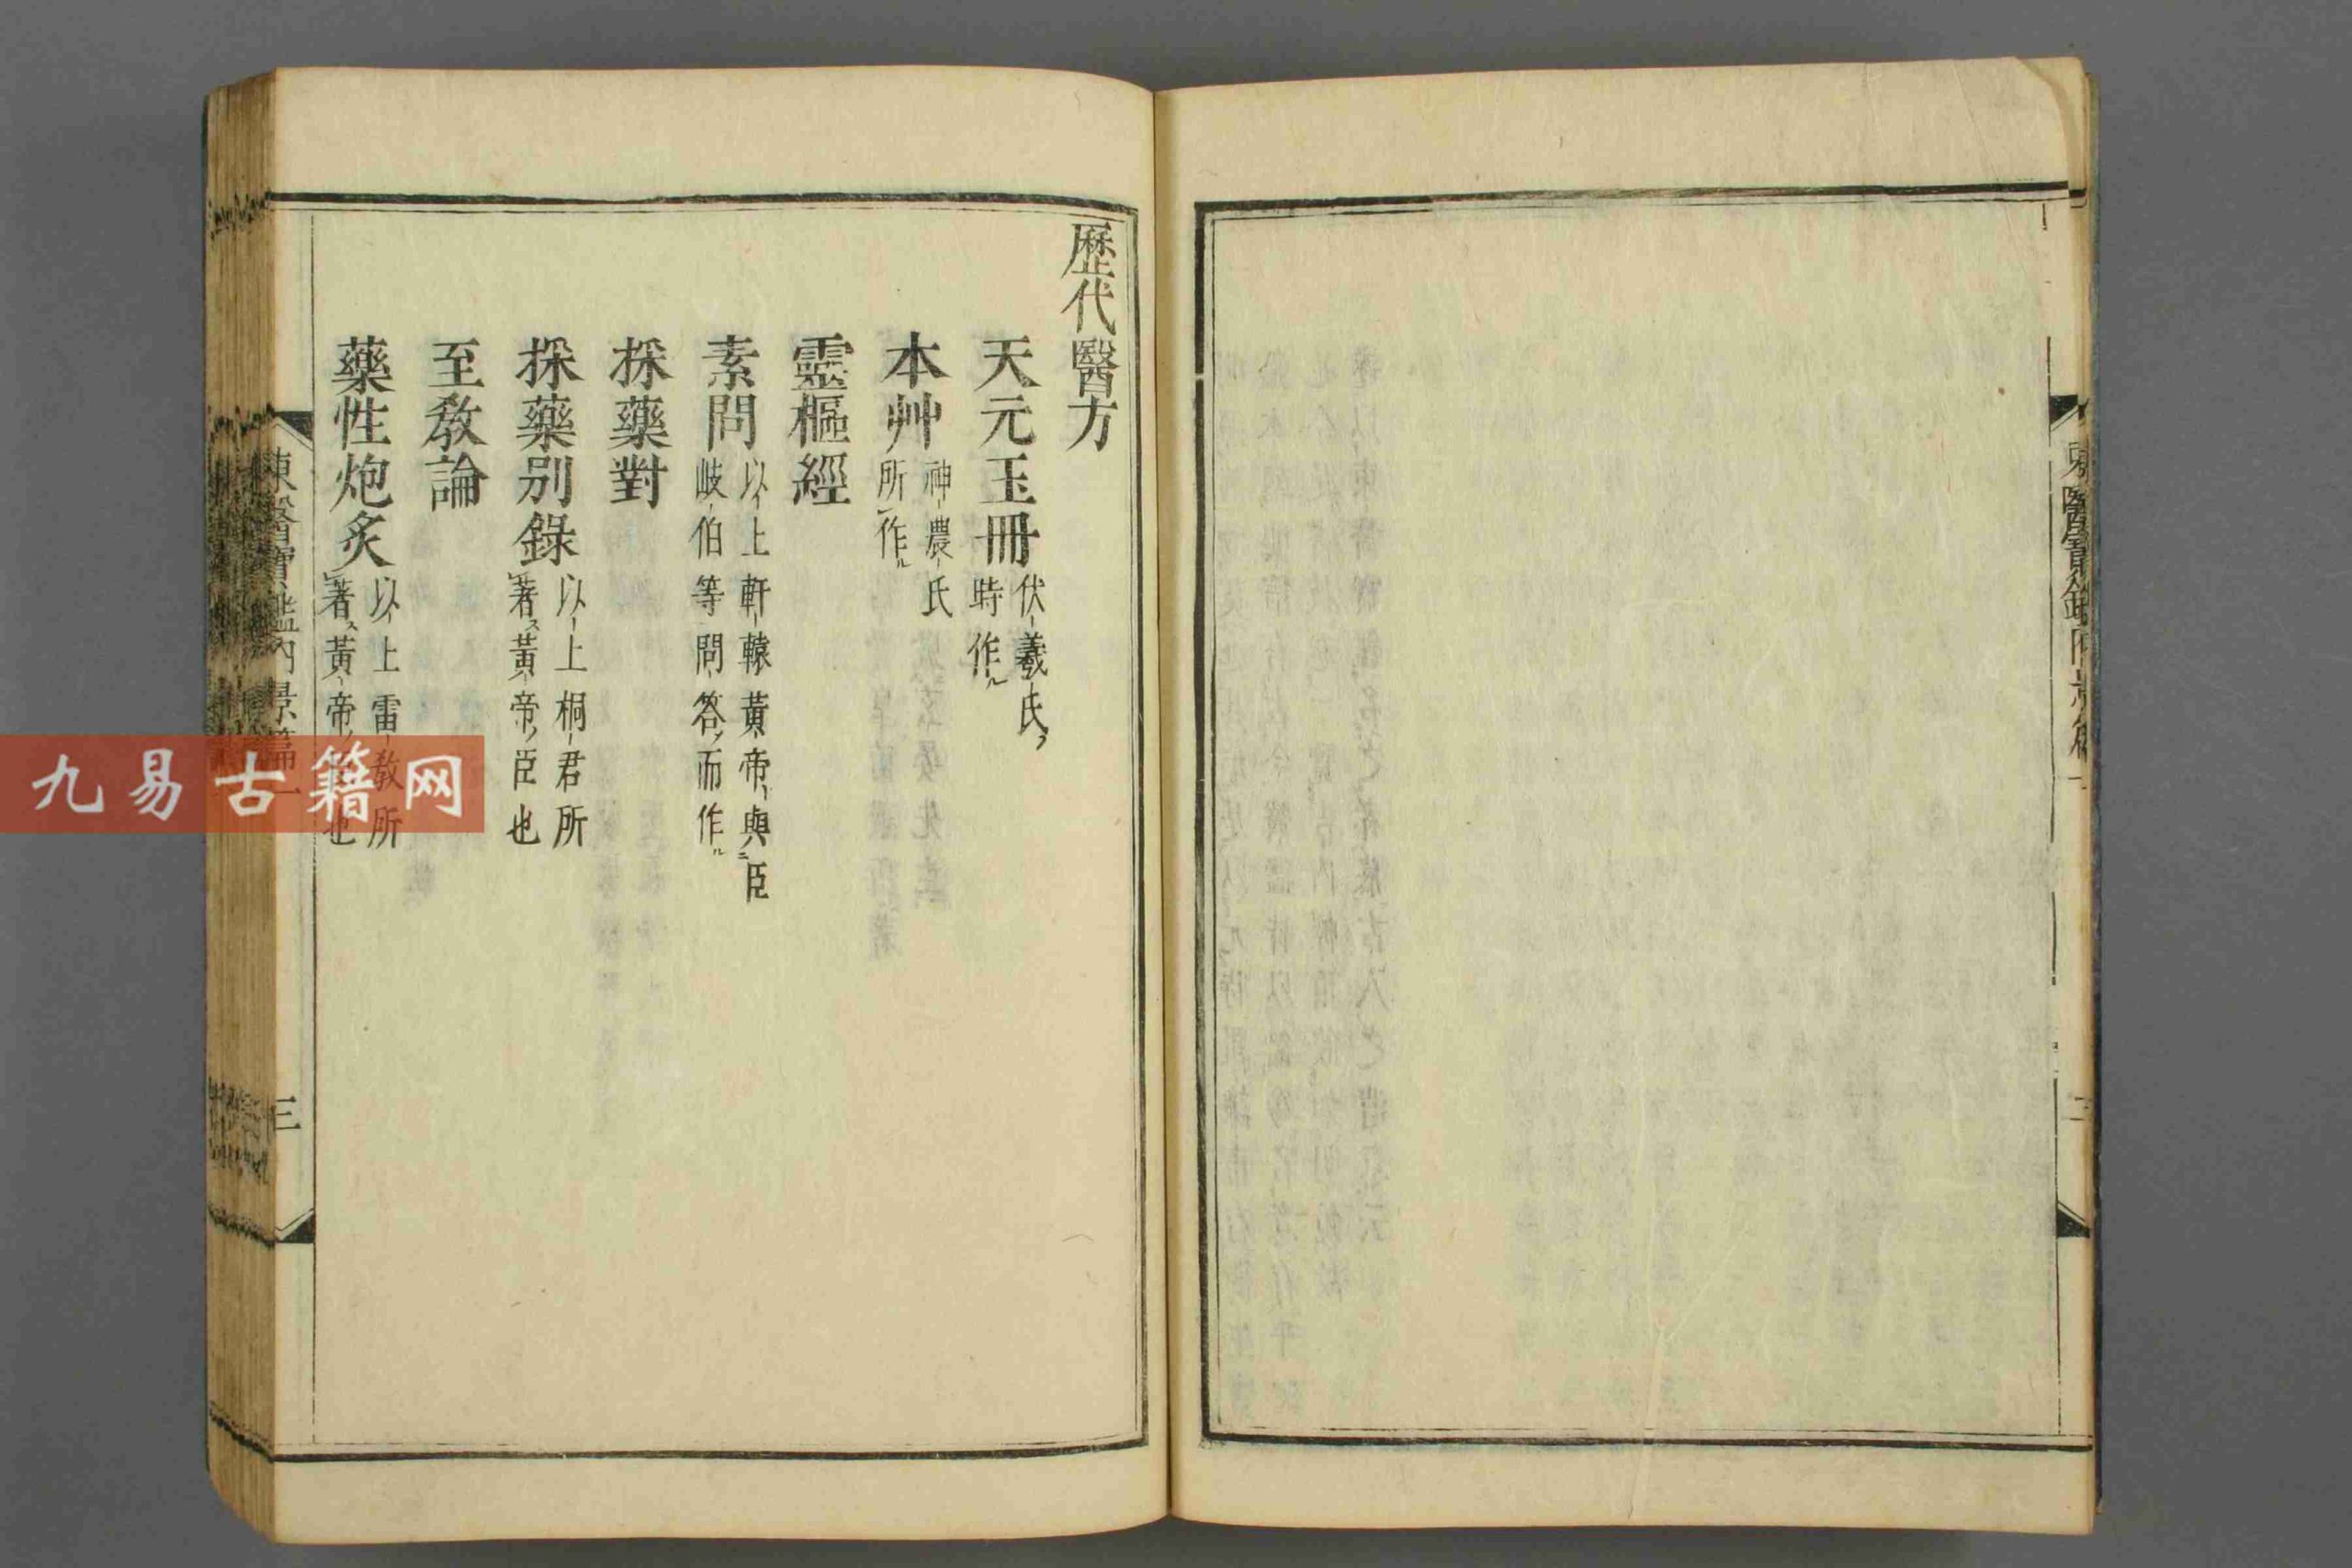 歷代醫方
天元玉冊 伏羲氏
時作
本艸 神農氏
所作
靈樞經
素問 以上軒轅黃帝與臣
岐伯等問答而作
採藥對
採藥別錄 以上桐君所
著黃帝臣也
至教論
藥性炮炙 以上雷教所
著黃帝也
東醫寶鑑內景篇一
三
九易古籍网